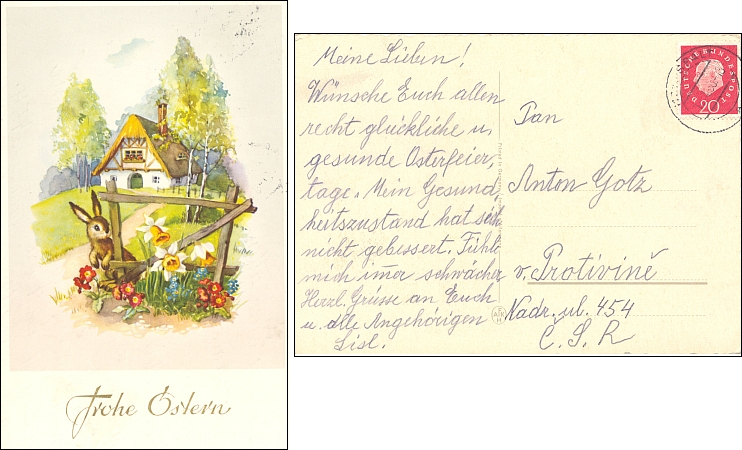 Frohe Ostern
Meine Lieben!
Wünsche Euch allen
recht glückliche u.
gesunde Osterfeier,
tage. Mein Gesund
heitszustand hat sich
nicht gebessert. Fühl
mich imer schwächer
Herzl. Grüsse an Euch
u. alle Angehörigen
Lisl.
DEUTSCHE BUNDESPOST
20
Pan
Anton Gotz
v. Protivině
Nadr. ul. 454
Č. S. R